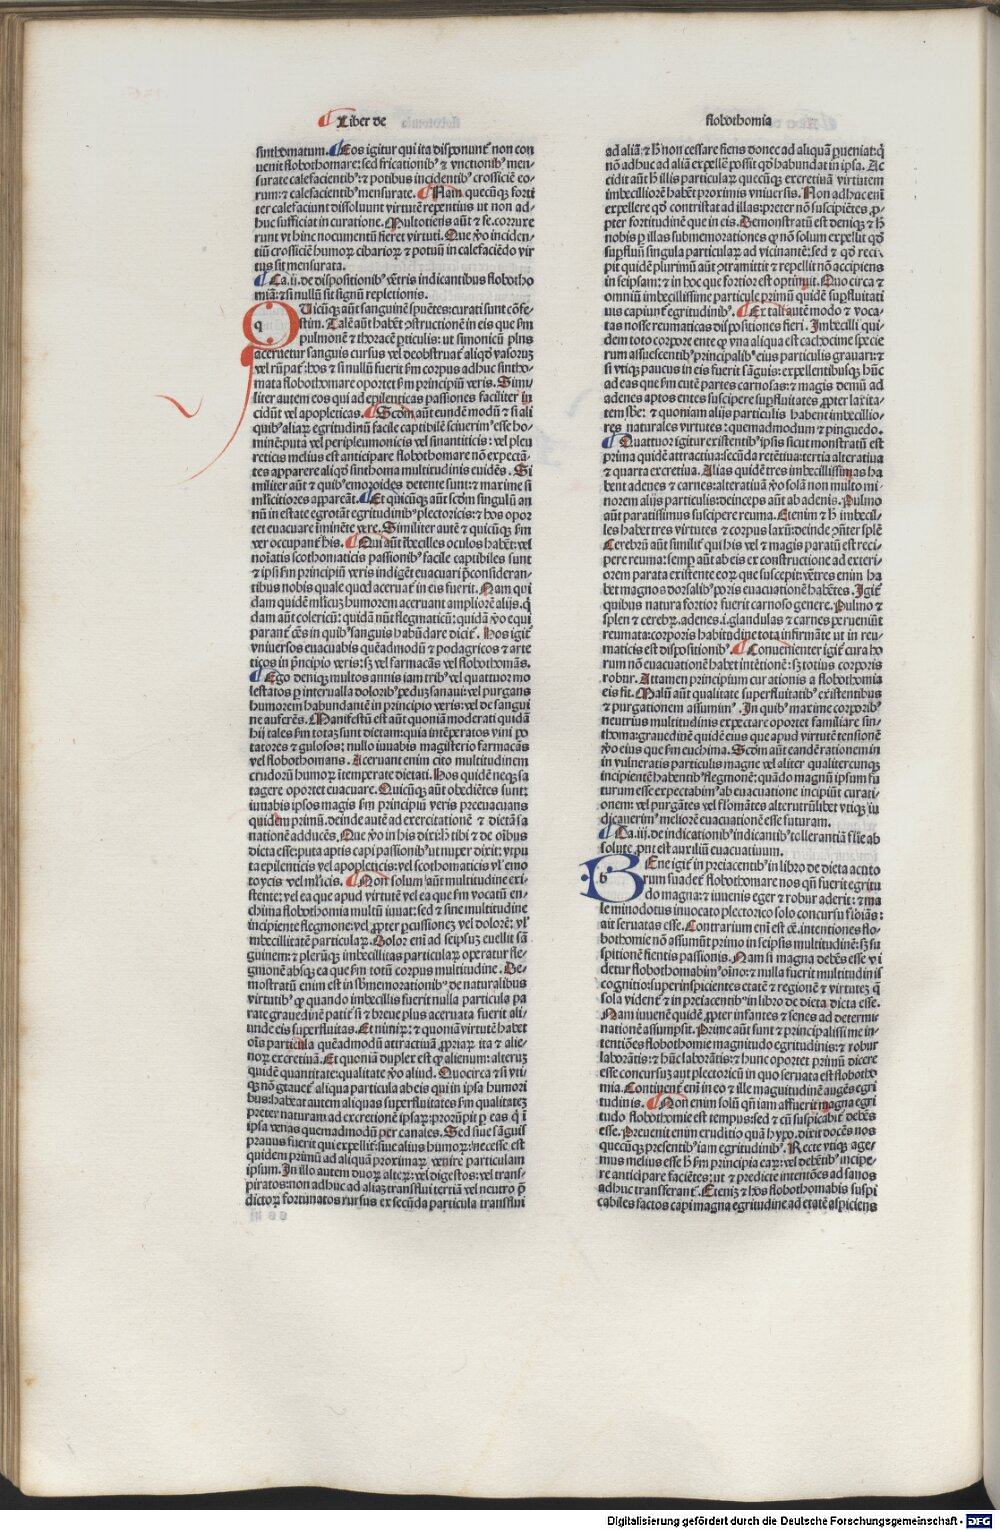 Liber de
flobothomia
sinthomatum. Eos igitur qui ita disponunt᷑ non con
uenit flobothomare: sed fricationibꝰ ⁊ vnctionibꝰ men-
surate calefacientibꝰ: ⁊ potibus incidentibꝰ crossiciē eo-
rum: ⁊ calefacientibꝰ mensurate. Nam quecūqꝫ forti
ter calefaciunt dissoluunt virtutē repentius ut non ad-
huc sufficiat in curatione. Multotiens aūt ⁊ se. corruxe
runt vt hinc nocumentū fieret virtuti. Que ꝟo inciden-
tiū crossiciē humoꝝ cibarioꝝ ⁊ potuū in calefaciēdo vir
tus sit mensurata.
Ca.ii. de dispositionibꝰ vētris indicantibus flobotho
miā: ⁊ si nullū sit signū repletionis.
Uicūqꝫ aūt sanguinē spuētes: curati sunt cōfe-
stim. Talē aūt habēt ꝯstructionē in eis que ẜm
pulmonē ⁊ thoracē ꝑticulis: ut simonicū plus
aceruetur sanguis cursus vel deobstruat᷑ aliqd̓ vasoruꝫ
vel rūpat᷑: hos ⁊ si nullū fuerit ẜm corpus adhuc sintho-
mata flobothomare oportet ẜm principiū veris. Simi-
liter autem eos qui ad epilenticas passiones faciliter in
cidūt vel apopleticas. Scd̓m aūt eundē modū ⁊ si ali
quibꝰ aliaꝝ egritudinū facile captibilē sciuerimꝰ esse ho-
minē: puta vel peripleumonicis vel sinantiticis: vel pleu
reticis melius est anticipare flobothomare nō expectā-
tes apparere aliqd̓ sinthoma multitudinis euidēs. Si
militer aūt ⁊ quibꝰ emoroides detente sunt: ⁊ maxime si
ml̓icitiores appareāt. Et quicūqꝫ aūt scd̓m singulū an
nū in estate egrotāt egritudinibꝰ plectoricis: ⁊ hos opor
tet euacuare īminēte vere. Similiter autē ⁊ quicūqꝫ ẜm
ver occupant᷑ his. Qui aūt ībecilles oculos habēt: vel
noīatis scothomaticis passionibꝰ facile captibiles sunt
⁊ ipsi ẜm principiū veris indigēt euacuari p̄consideran-
tibus nobis quale quod aceruat᷑ in eis fuerit. Nam qui
dam quidē ml̓icuꝫ humorem aceruant ampliorē alijs. q̄
dam aūt colericū: quidā nūt flegmaticū: quidā ꝟo equi
parant᷑ oēs in quibꝰ sanguis habūdare dicit᷑. Hos igit᷑
vniuersos euacuabis quēadmodū ⁊ podagricos ⁊ arte
ticos in p̄ncipio veris: sꝫ vel farmacās vel flobothomās.
Ego deniqꝫ multos annis iam tribꝰ vel quattuor mo
lestatos ꝑ interualla doloribꝰ peduꝫ sanaui: vel purgans
humorem habundantē in principio veris: vel de sangui
ne auferēs. Manifestū est aūt quoniā moderati quidā
hij tales ẜm totaꝫ sunt dietam: quia intēperatos vini po
tatores ⁊ gulosos: nullo iuuabis magisterio farmacās
vel flobothomans. Aceruant enim cito multitudinem
crudorū humoꝝ ītemperate dietati. Hos quidē neqꝫ sa
tagere oportet euacuare. Quicūqꝫ aūt obediētes sunt:
iuuabis ipsos magis ẜm principiū veris preeuacuans
quidem primū. deinde autē ad exercitationē ⁊ dietā sa
nationē adducēs. Que ꝟo in his dixi: hꝰ tibi ⁊ de oībus
dicta esse: puta aptis capi passionibꝰ ut nuper dixit: vtpu
ta epilenticis vel apopleticis: vel scothomaticis vl̓ emo
toycis vel ml̓icis. Non solum aūt multitudine exi-
stente: vel ea que apud virtutē vel ea que ẜm vocatū en-
chima flobothomia multū iuuat: sed ⁊ sine multitudine
incipiente flegmone: vel ꝓpter ꝑcussioneꝫ vel dolorē: vl̓
imbecillitatē particulaꝝ. Dolor em̄ ad seipsuꝫ euellit sā
guinem: ⁊ plerūqꝫ imbecillitas particulaꝝ operatur fle-
gmonē absqꝫ ea que ẜm totū corpus multitudine. De-
mostratū enim est in sb̓memorationibꝰ de naturalibus
virtutibꝰ ꝙ quando imbecillis fuerit nulla particula pa
rate grauedinē patit᷑ si ⁊ breue plus aceruata fuerit ali-
unde eis superfluitas. Et nimiꝝ: ⁊ quoniā virtutē habet
oīs particula quēadmodū attractiuā ꝓpriaꝝ ita ⁊ alie-
noꝝ excretiuā. Et quoniā duplex est qd̓ alienum: alteruꝫ
quidē quantitate: qualitate ꝟo aliud. Quocirca ⁊ si vti-
qꝫ nō grauet᷑ aliqua particula ab eis qui in ipsa humori
bus: habeat autem aliquas superfluitates ẜm qualitateꝫ
preter naturam ad excretionē ipsaꝝ: prorūpit ꝑ eas q̄ ī
ipsa venas quemadmodū per canales. Sed siue sāguis
prauus fuerit qui expellit᷑: siue aliꝰ humoꝝ: necesse est
quidem primū ad aliquā proximaꝝ venire particulam
ipsum. In illo autem duoꝝ alteꝝ: vel digestos: vel trans-
piratos: non adhuc ad aliaꝫ transfluit tertiā vel neutro p̄
dictoꝝ fortunatos rursus ex secūda particula transfluit
ad aliā: ⁊ hꝰ non cessare fiens donec ad aliquā ꝑueniat: q̄
nō adhuc ad aliā expellē possit qd̓ habundat in ipsa. Ac
cidit aūt hꝰ illis particulaꝝ quecūqꝫ excretiuā virtutem
imbecilliorē habēt proximis vniuersis. Non adhuc em̄
expellere qd̓ contristat ad illas: preter nō suscipiētes ꝓ-
pter fortitudinē que in eis. Demonstratū est deniqꝫ ⁊ hꝰ
nobis ꝑ illas submemorationes ꝙ nō solum expellit qd̓
suꝑfluū singula particulaꝝ ad vicinantē: sed ⁊ qd̓ reci-
pit quidē plurimū aūt ꝯtramittit ⁊ repellit nō accipiens
in seipsam: ⁊ in hoc que fortior est optinuit. Quo circa ⁊
omniū imbecillissime particule primū quidē suꝑfluitati
uis capiunt᷑ egritudinibꝰ. Ex tali autē modo ⁊ voca-
tas nosse reumaticas dispositiones fieri. Imbecilli qui-
dem toto corpore ente ꝙ vna aliqua est cachocime specie
rum assuescentibꝰ principalibꝰ eius particulis grauari: ⁊
si vtiqꝫ paucus in eis fuerit sāguis: expellentibusqꝫ huc
ad eas que ẜm cutē partes carnosas: ⁊ magis demū ad
adenes aptos entes suscipere suꝑfluitates ꝓpter laxita-
tem sb̓e: ⁊ quoniam alijs particulis habent imbecillio-
res naturales virtutes: quemadmodum ⁊ pinguedo.
Quattuor igitur existentibꝰ ipsis sicut monstratū est
prima quidē attractiua: secūda retētiua: tertia alteratiua
⁊ quarta excretiua. Alias quidē tres imbecillissimas ha
bent adenes ⁊ carnes: alteratiuā ꝟo solā non multo mi-
norem alijs particulis: deinceps aūt ab adenis. Pulmo
aūt paratissimus suscipere reuma. Etenim ⁊ hꝰ imbecil-
les habet tres virtutes ⁊ corpus laxū: deinde ꝯn̄ter splē
Cerebrū aūt similit᷑ qui his vel ⁊ magis paratū est reci-
pere reuma: semꝑ aūt ab eis ex constructione ad exteri-
orem parata existente eoꝝ que suscepit: vētres enim ha
bet magnos dorsalibꝰ poris euacuationē habētes. Igit᷑
quibus natura fortior fuerit carnoso genere. Pulmo ⁊
splen ⁊ cerebꝝ. adenes. i. glandulas ⁊ carnes perueniūt
reumata: corporis habitudine tota infirmāte ut in reu-
maticis est dispositionibꝰ. Conuenienter igit᷑ cura ho
rum nō euacuationē habet intētionē: sꝫ totius corporis
robur. Attamen principium curationis a flobothomia
eis fit. Malū aūt qualitate superfluitatibꝰ existentibus
⁊ purgationem assumimꝰ. In quibꝰ maxime corporibꝰ
neutrius multitudinis expectare oportet familiare sin-
thoma: grauedinē quidē eius que apud virtutē tensionē
ꝟo eius que ẜm euchima. Scd̓m aūt eandē rationem in
in vulneratis particulis magne vel aliter qualitercunqꝫ
incipientē habentibꝰ flegmonē: quādo magnū ipsum fu
turum esse expectabimꝰ ab euacuatione incipiūt curati-
onem: vel purgātes vel flo̅mātes alterutrūlibet vtiqꝫ iu
dicauerimꝰ meliorē euacuationē esse futuram.
Ca.iij. de indicationibꝰ indicantibꝰ tollerantiā flīe ab
solute ꝓut est auxiliū euacuatiuum.
Ene igit᷑ in preiacentibꝰ in libro de dieta acuto
rum suadet᷑ flobothomare nos qn̄ fuerit egritu
do magna: ⁊ iuuenis eger ⁊ robur aderit: ⁊ ma
le minodotus inuocato plectorico solo concursu floīas:
ait seruatas esse. Contrarium em̄ est cē. intentiones flo-
bothomie nō assumūt primo in seipsis multitudinē: sꝫ su
spitionē fientis passionis. Nam si magna debēs esse vi
detur flobothomabimꝰ oīno: ⁊ nulla fuerit multitudinis
cognitio: superinspicientes etatē ⁊ regionē ⁊ virtuteꝫ q̄
sola vident᷑ ⁊ in preiacentibꝰ in libro de dieta dicta esse.
Nam iuuenē quidē ꝓpter infantes ⁊ senes ad determi
nationē assumpsit. Prime aūt sunt ⁊ principalissime in-
tentiōes flobothomie magnitudo egritudinis: ⁊ robur
laborātis: ⁊ hūc laborātis: ⁊ hunc oportet primū dicere
esse concursuꝫ aut plectoricū in quo seruata est flobotho
mia. Continent᷑ em̄ in eo ⁊ ille magnitudinē augēs egri
tudinis. Non enim solū qn̄ iam affuerit magna egri
tudo flobothomie est tempus: sed ⁊ cū suspicabit᷑ debēs
esse. Preuenit enim eruditio quā hypo. dixit docēs nos
quecūqꝫ presentibꝰ iam egritudinibꝰ. Recte vtiqꝫ age-
mus melius esse hꝰ ẜm principia eaꝝ: vel debētibꝰ incipe-
re anticipare faciētes: ut ⁊ predicte intentiōes ad sanos
adhuc transferant᷑. Eteniꝫ ⁊ hos flobothomabis suspi
cabiles factos capi magna egritudine ad etatē aspiciens
Digitalisierung gefördert durch die Deutsche Forschungsgemeinschaft - DFG